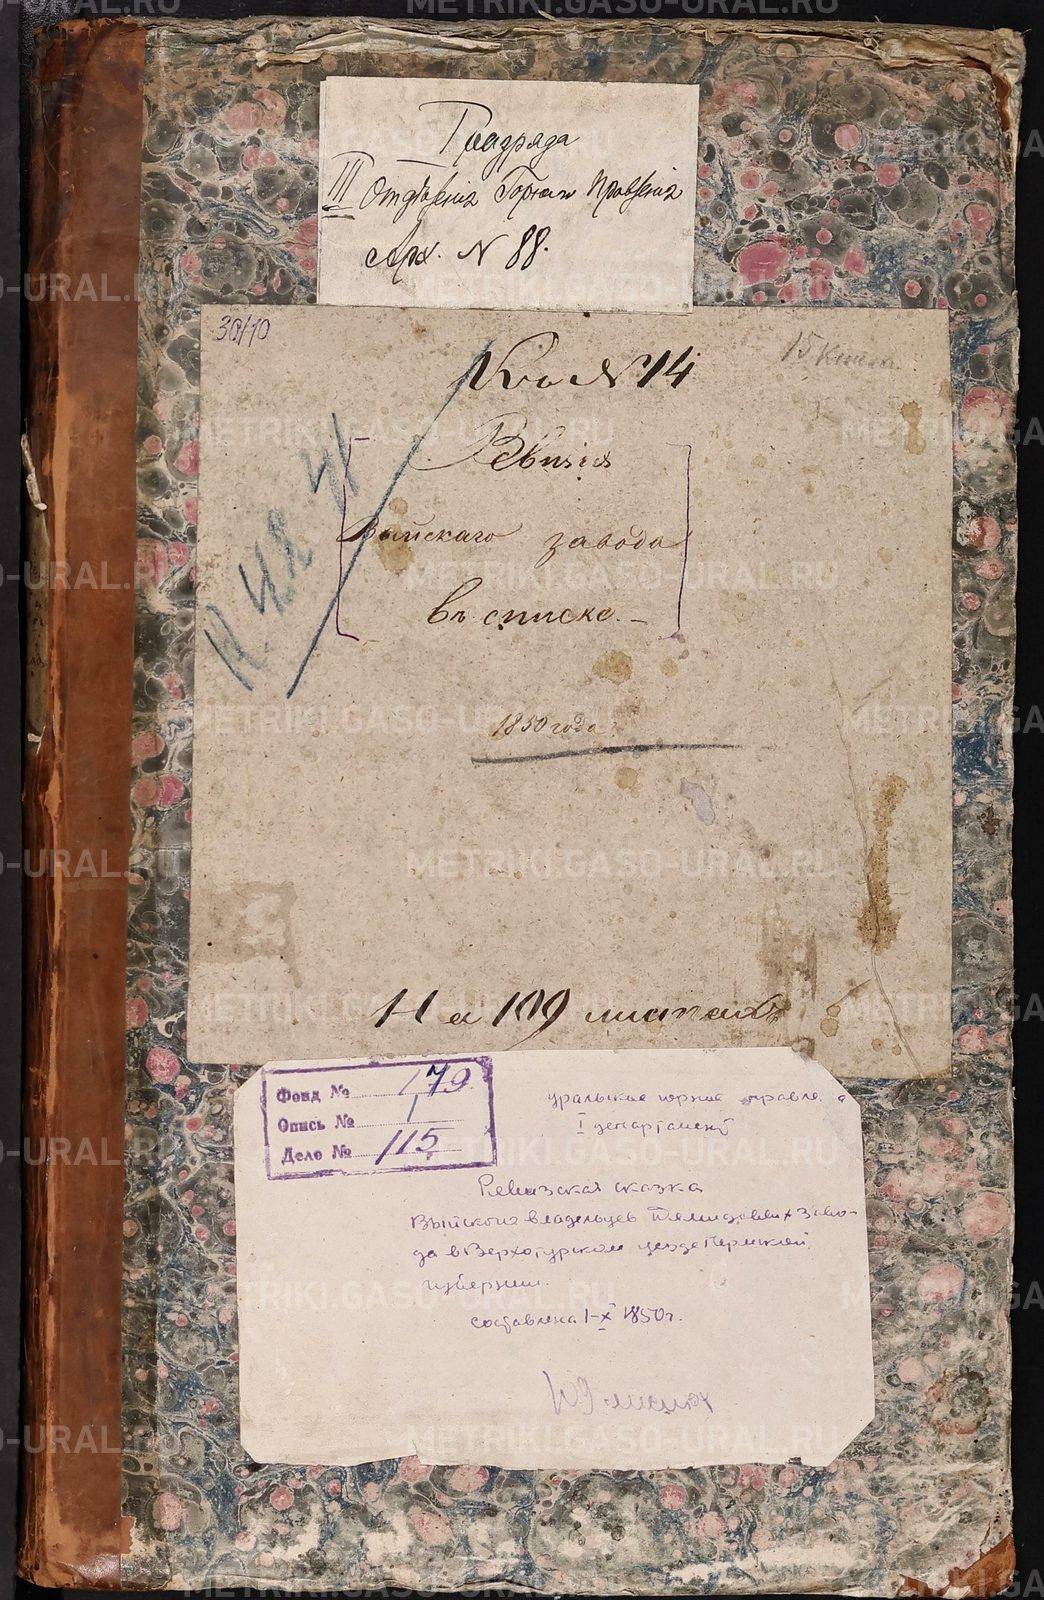 I разряда
III Отдѣленія Горнаго Правленія
Арх. № 88.
30/10
Къ № 14
Ревизія
Выйскаго завода
въ списке.
1850 года
На 109 листахъ
Фонд № 179
Опись № 1
Дело № 115
уральские горные правле
I департамент
Ревизская сказка
Выйского владельцев Демидовых заво-
да в Верхотурском уезде Пермской
губернии.
составлена 1-X 1850 г.
109 листах
METRIKI.GASO-URAL.RU